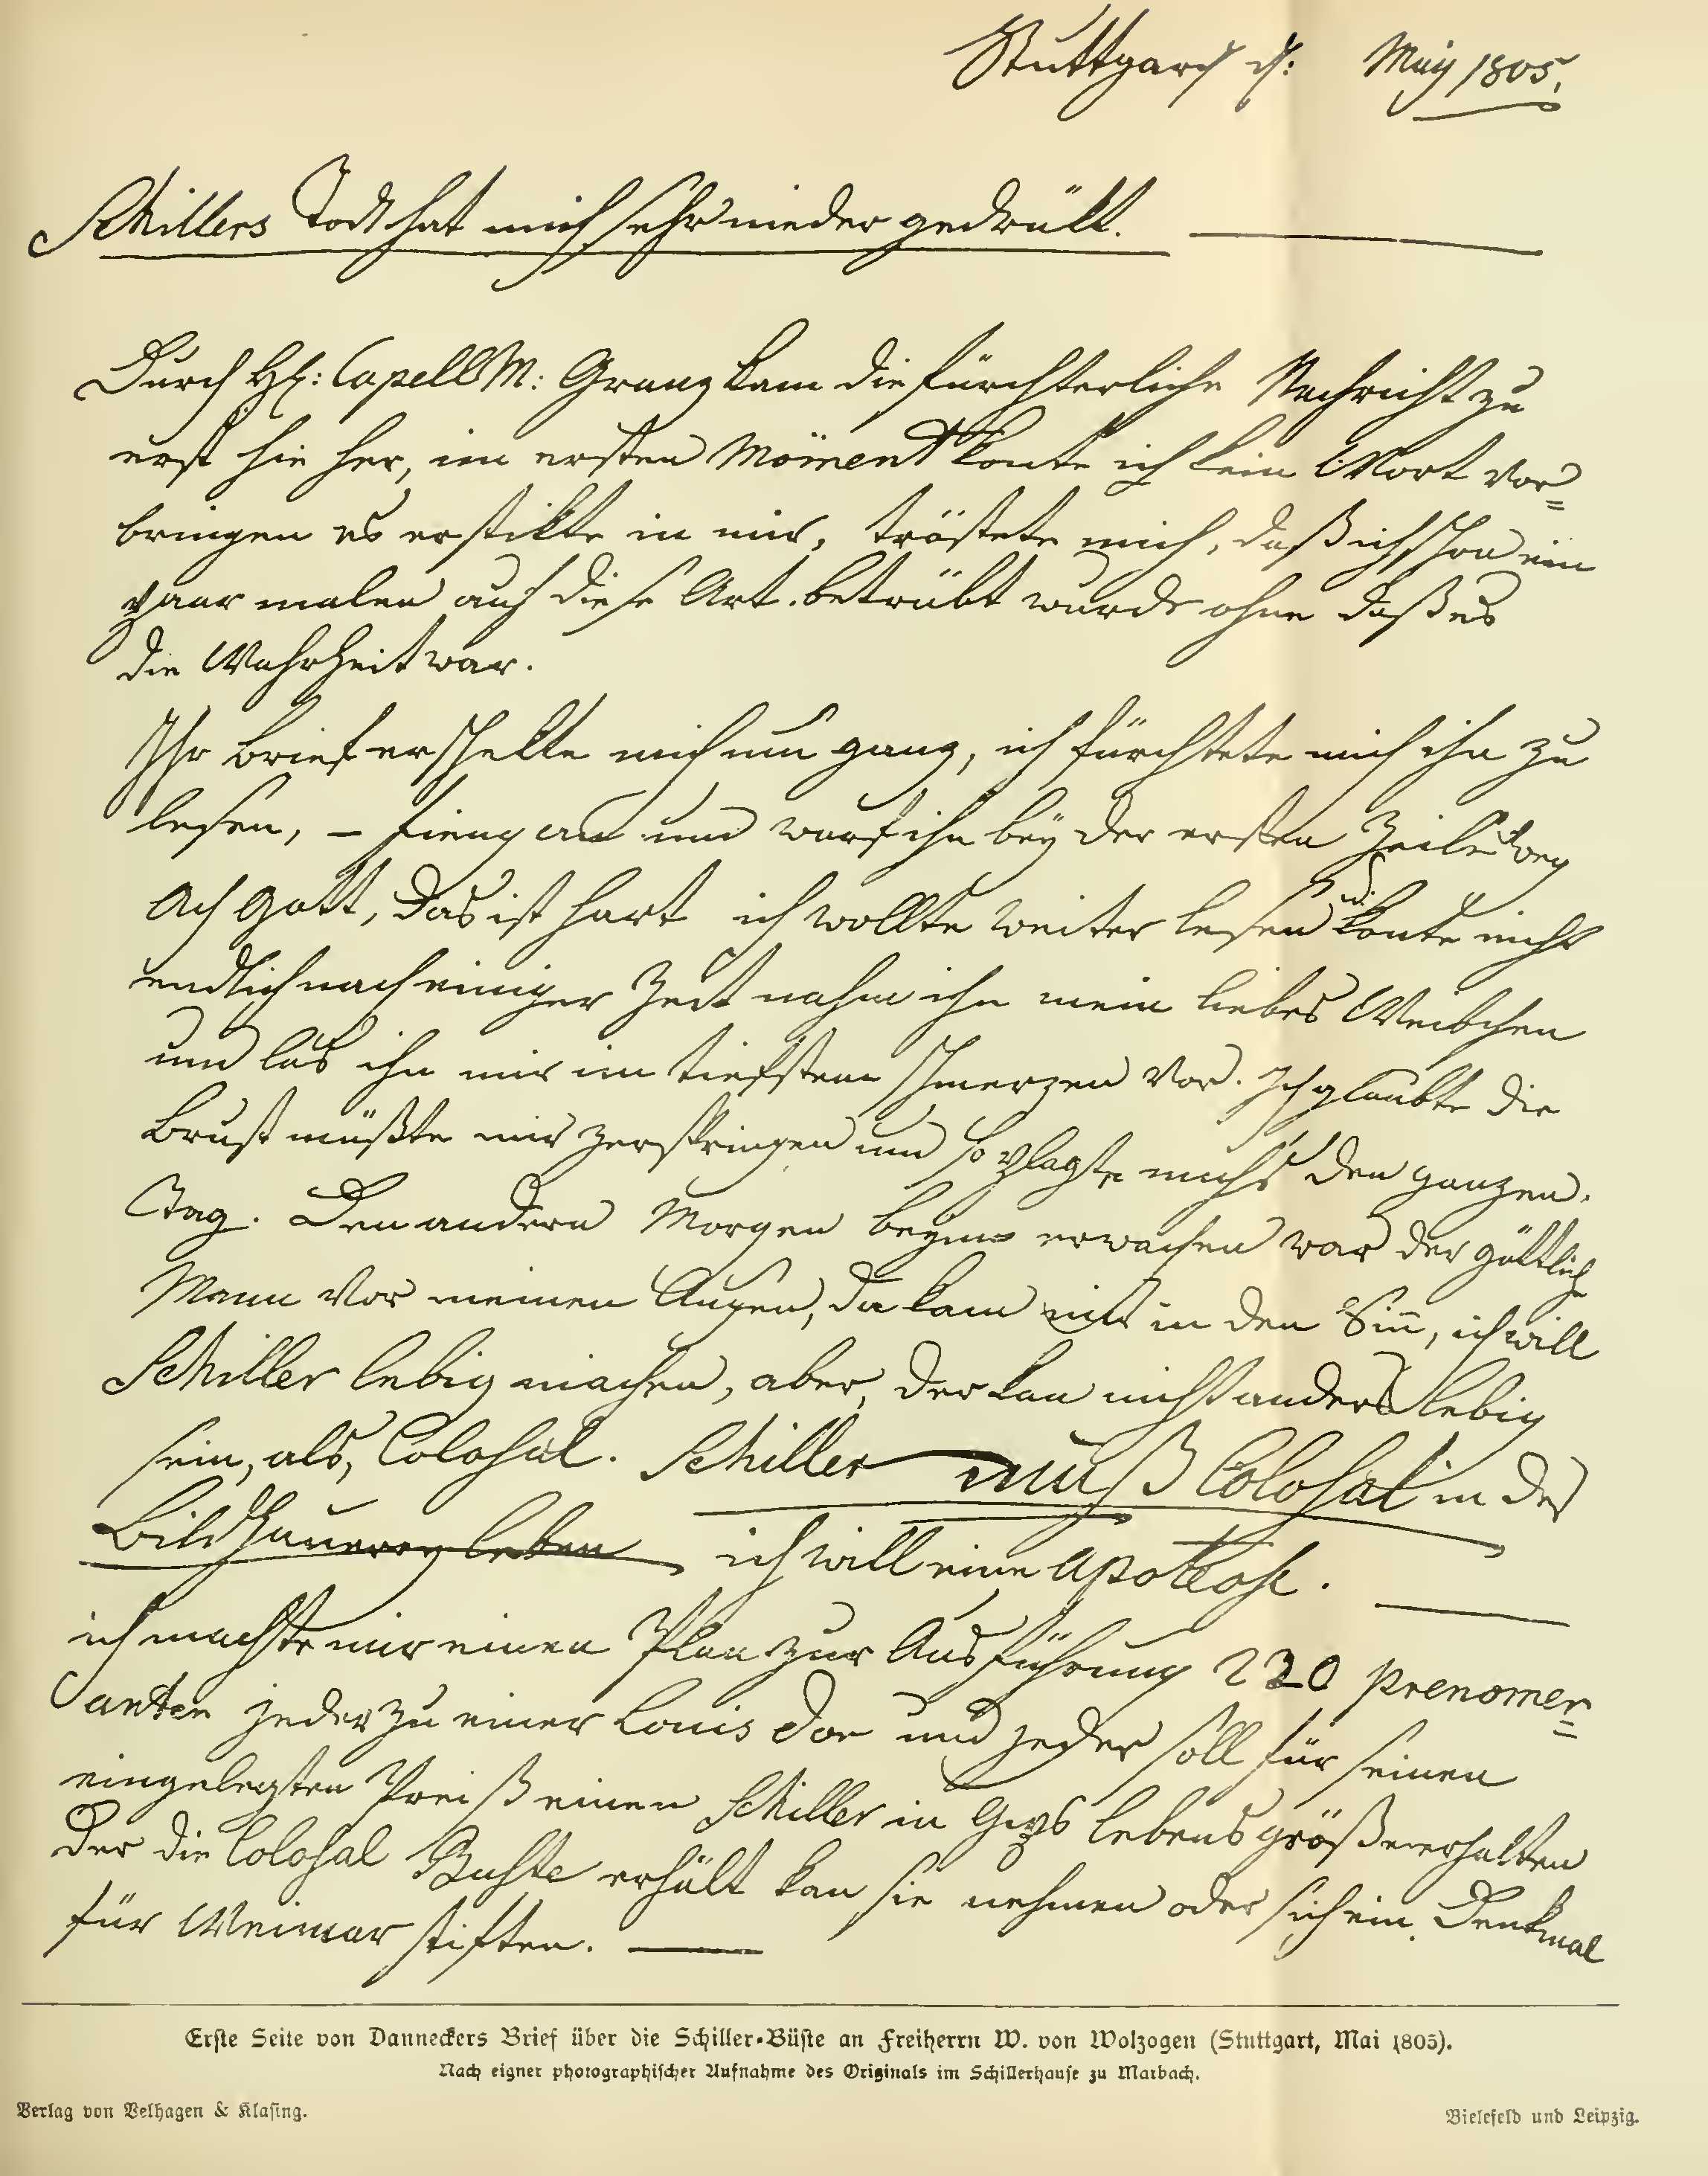 Stuttgart d: May 1805.
Schillers Todt hat mich sehr nieder gedrükt.
Durch H: CapellM: Granz kam die fürchterliche Nachricht zu
erst hie her, im ersten Moment konte ich kein Wort vor=
bringen es erstikte in mir, tröstete mich, daß ich schon ein
paar malen auf diese Art betrübt wurde ohne daß es
die Wahrheit war.
Ihr Brief erschelte mich nun ganz, ich fürchtete mich ihn zu
lesen, – fieng an und warf ihn bey der ersten Zeile weg
Ach Gott, das ist hart ich wollte weiter lesen u. konte nicht
endlich nach einiger Zeit nahm ihn mein liebes Weibchen
und las ihn mir im tiefsten Schmerzen vor. Ich glaubte die
Brust müßte mir zerspringen und so plagte michs den ganzen
Tag. Den andern Morgen beym erwachen war der göttliche
Mann vor meinen Augen, da kam mir in den Sin̄, ich will
Schiller lebig machen, aber, der kan nicht anders lebig
sein, als, Colosal. Schiller muß Colosal in der
Bildhauerey leben ich will eine Apoteose.
ich machte mir einen Plan zur Ausführung 220 prenomer=
anten jeder zu einer Louis dor und jeder soll für seinen
eingelegten Preiß einen Schiller in Gyps lebensgröße erhalten
der die Colosal Buste erhält kan sie nehmen oder sich ein Denkmal
für Weimar stiften.
Erste Seite von Danneckers Brief über die Schiller-Büste an Freiherrn W. von Wolzogen (Stuttgart, Mai 1805).
Nach eigner photographischer Aufnahme des Originals im Schillerhause zu Marbach.
Verlag von Velhagen & Klasing.
Bielefeld und Leipzig.